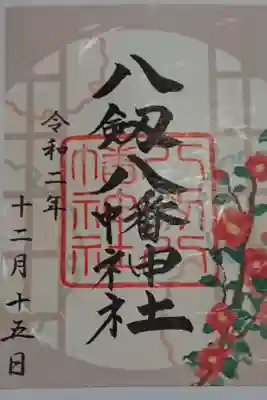 八劔八幡神社
令和二年
十二月十五日
幡神社